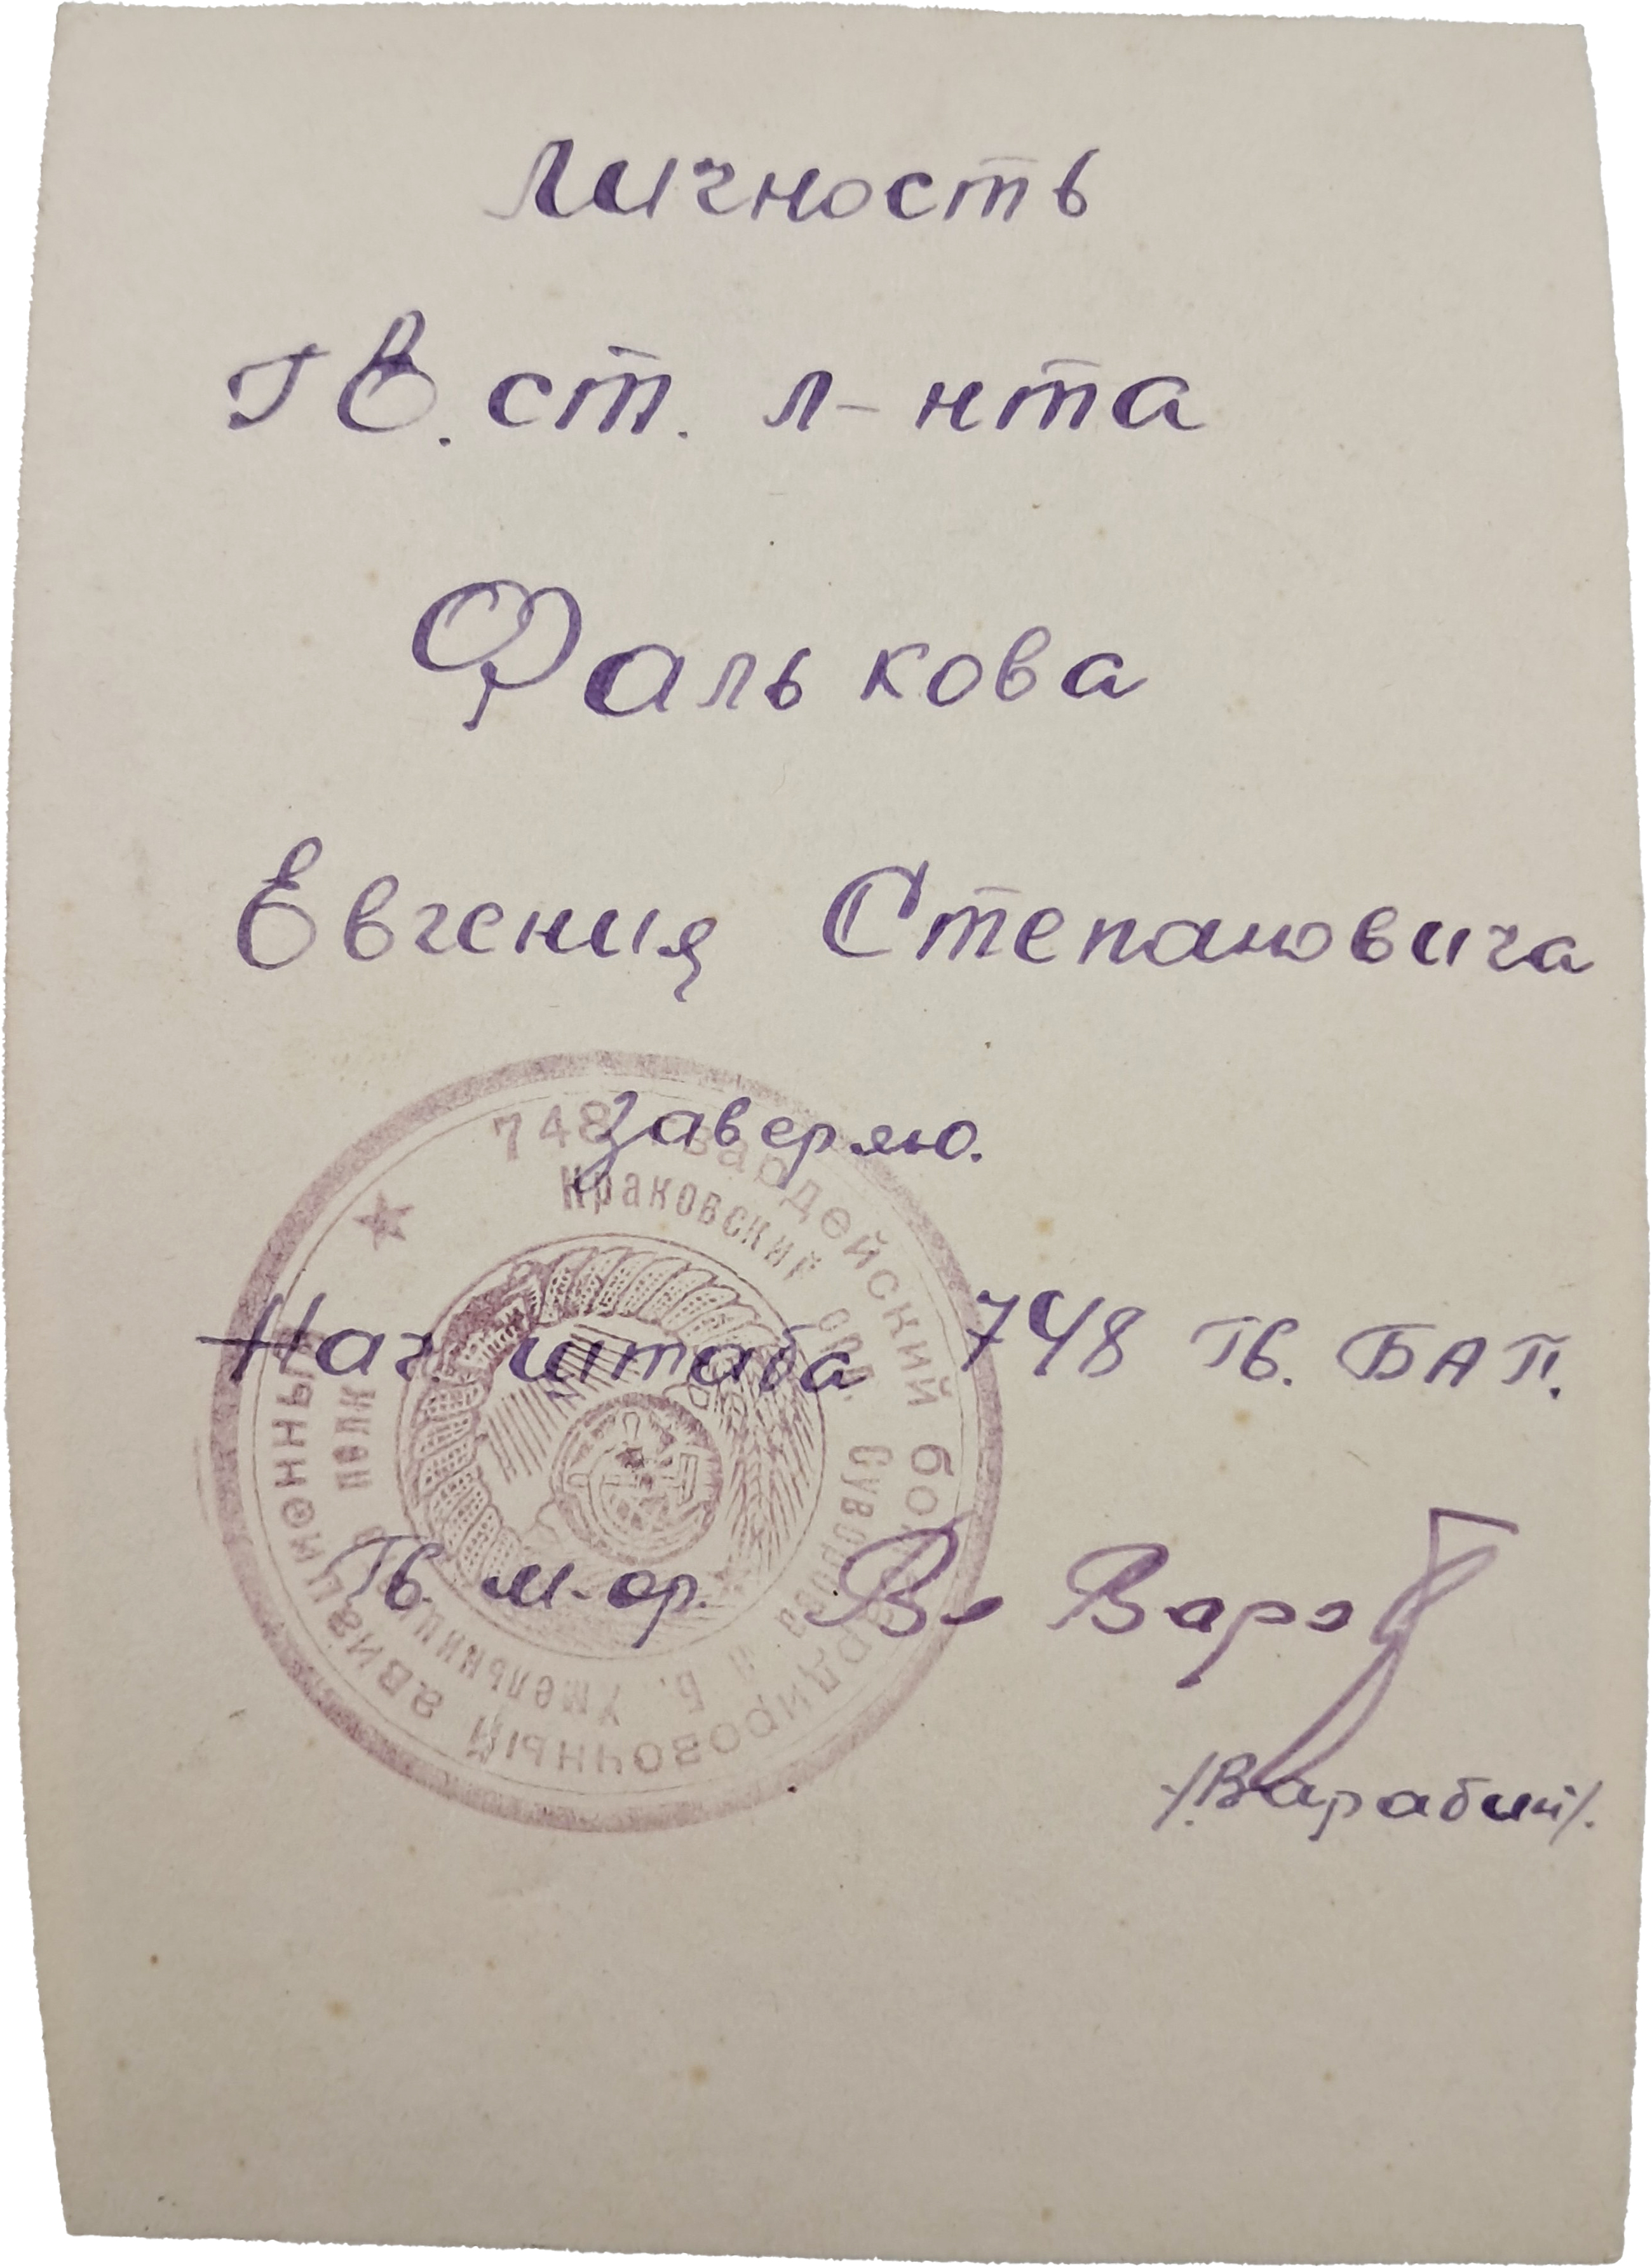 Личность
Гв. ст. л-нта
Фалькова
Евгения Степановича
Заверяю.
Нач. штаба 748 Гв. БАП.
Гв. м-ор.
/Варабин/.
748 гвардейский бомбардировочный авиационный
Краковский орд. Суворова и Б. Хмельницкого полк